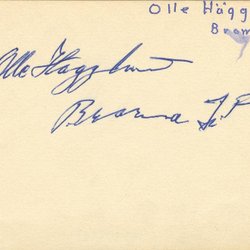 Olle Hägg
Brom
Olle Häggblom
Bromma I.F